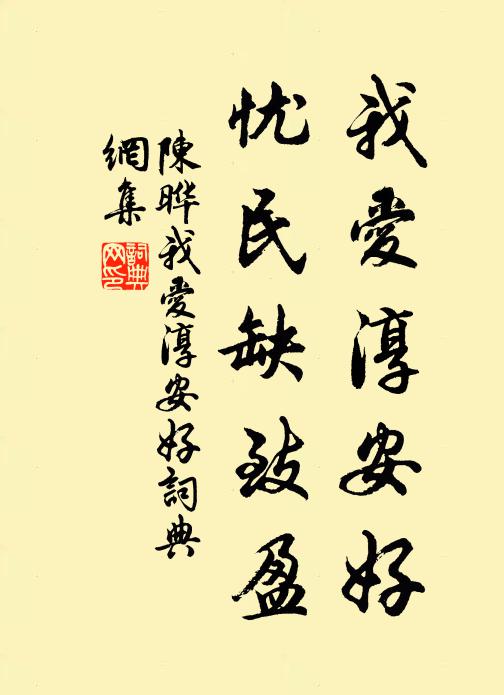 我愛淳安好
忧民缺致盈
陳晔我愛淳安好詞典
網集
詞典
网印